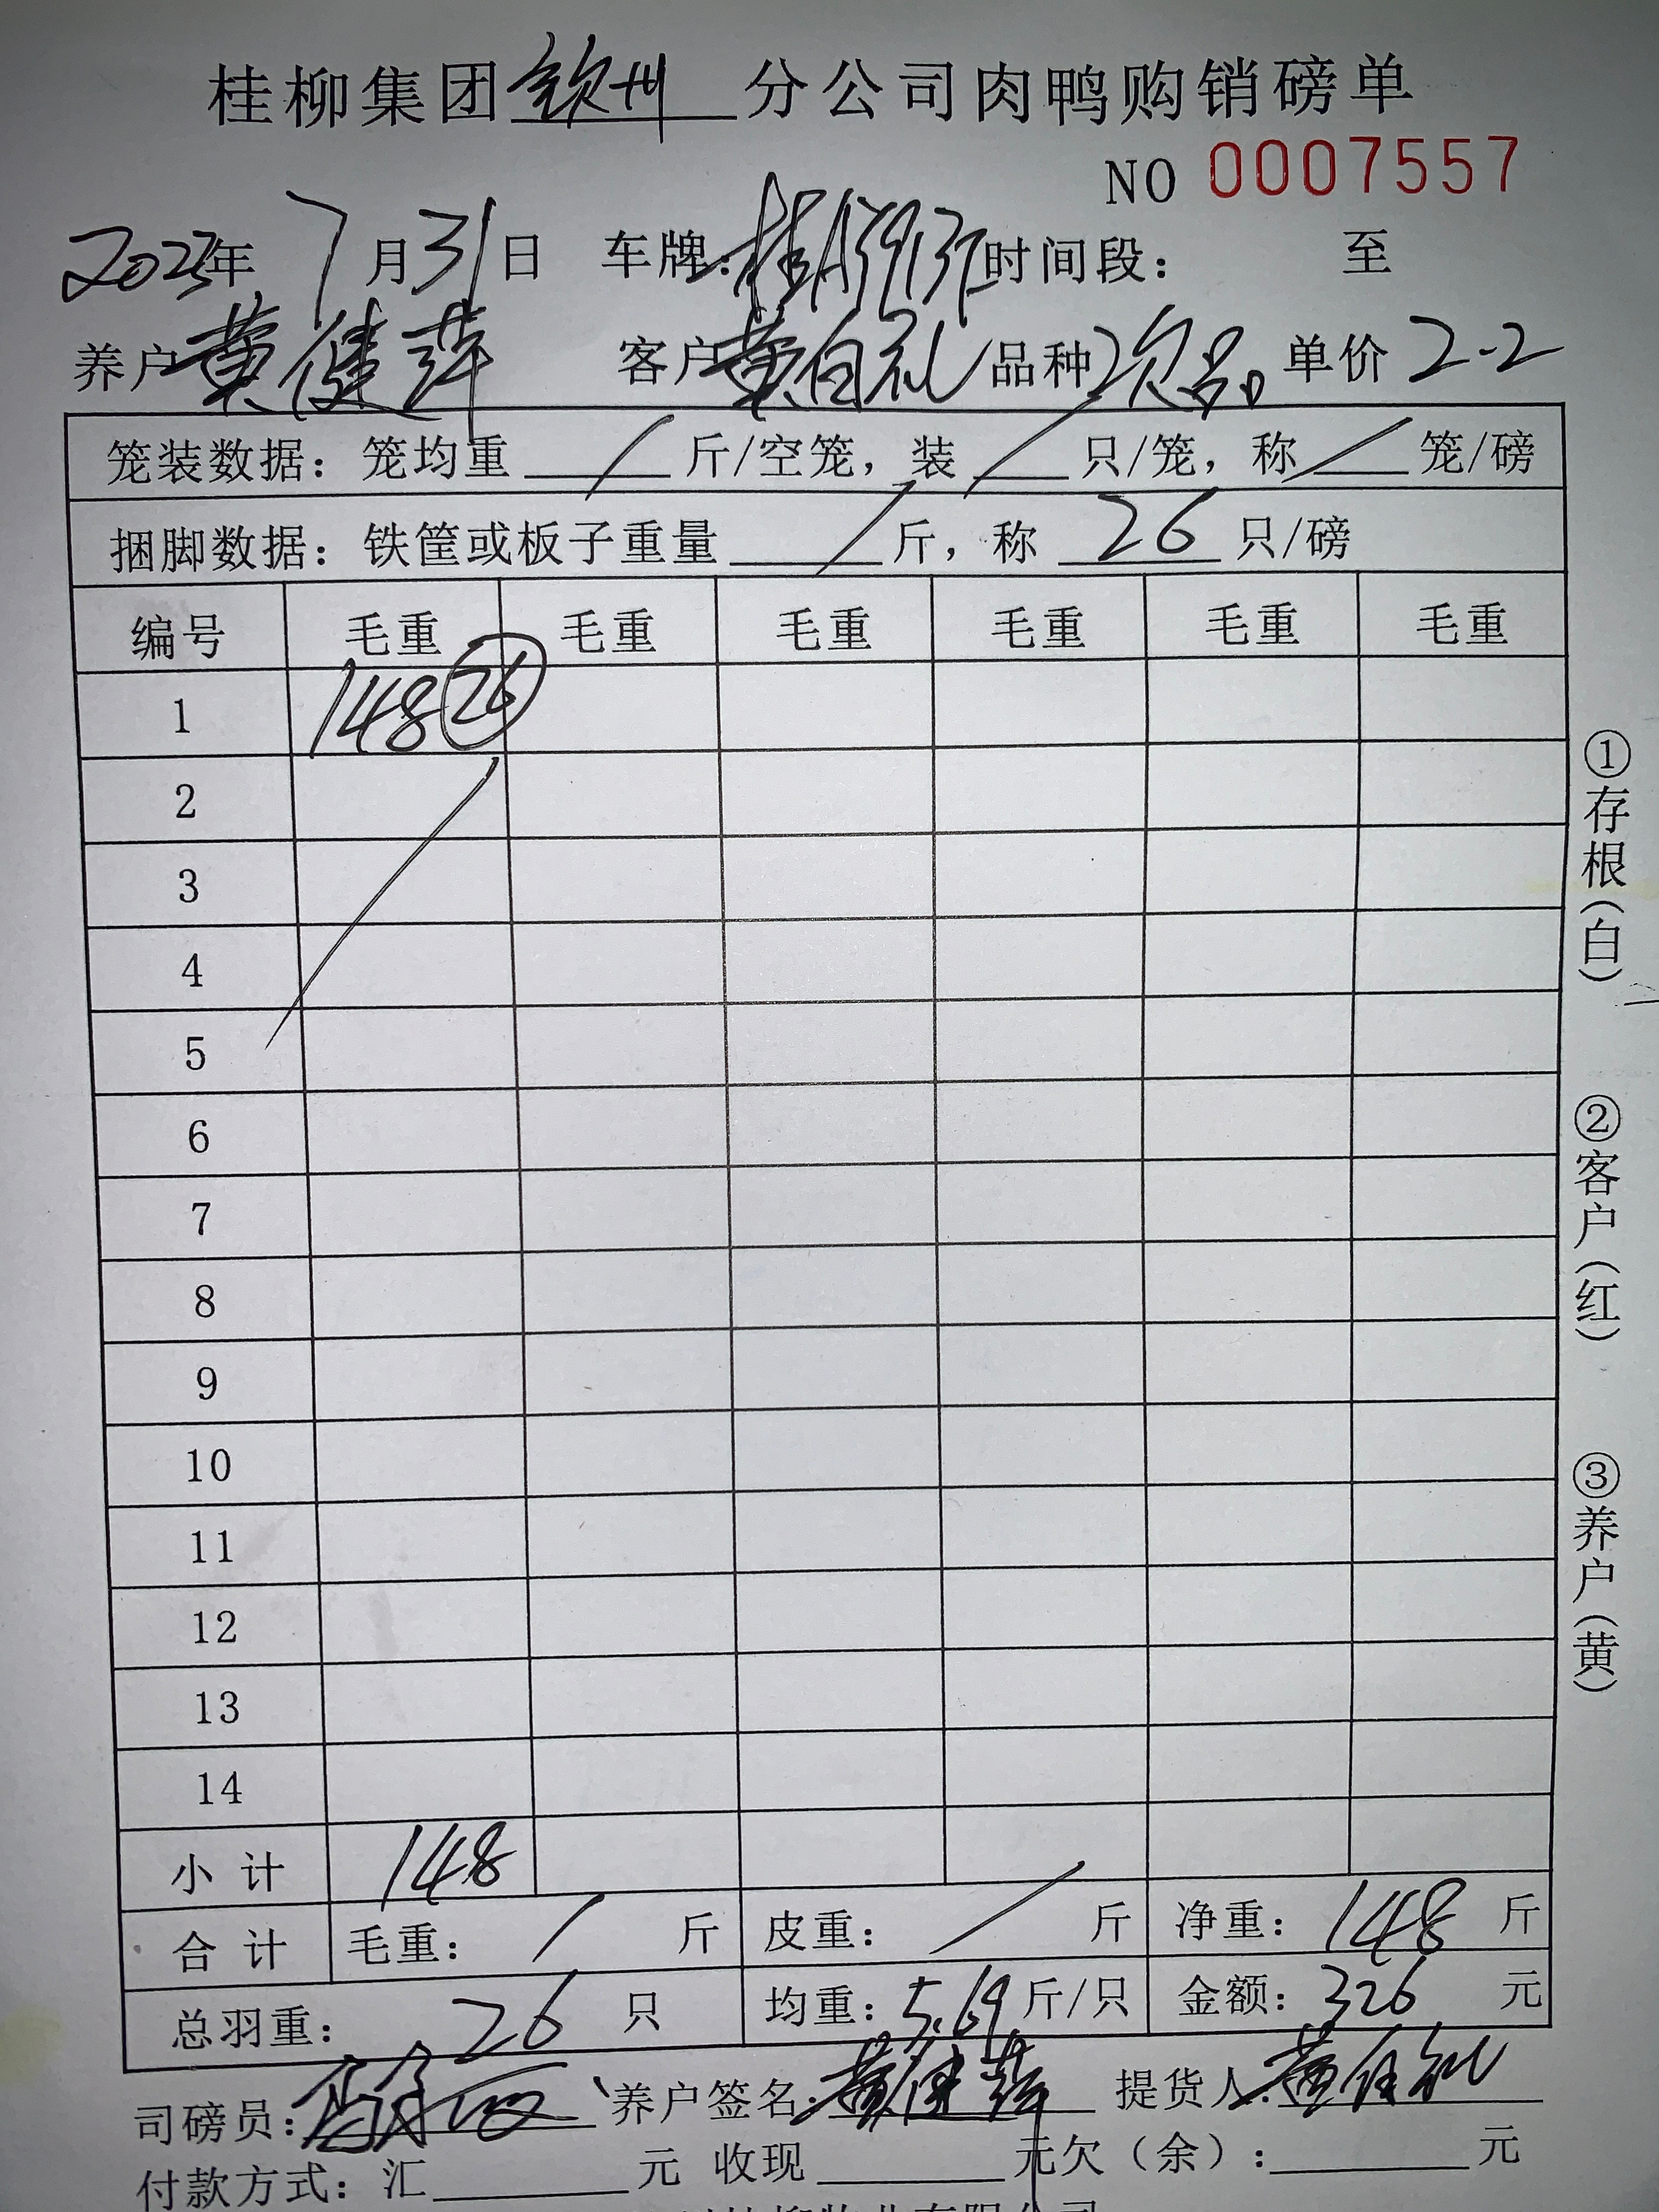 桂柳集团钦州分公司肉鸭购销磅单
NO 0007557
2023年7月31日 车牌: 时间段: 至
养户黄健萍 客户黄伯礼 品种次品 单价2-2
笼装数据: 笼均重/斤/空笼, 装/只/笼, 称/笼/磅
捆脚数据: 铁筐或板子重量/斤, 称26只/磅
编号 毛重 毛重 毛重 毛重 毛重 毛重
1 148 26
2
3
4
5
6
7
8
9
10
11
12
13
14
小计 148
合计 毛重: / 斤 皮重: / 斤 净重: 148 斤
总羽重: 26 只 均重: 5.69 斤/只 金额: 326 元
司磅员: 养户签名: 黄健萍 提货人: 黄伯礼
付款方式: 汇 元 收现 元欠(余): 元
①存根(白)
②客户(红)
③养户(黄)